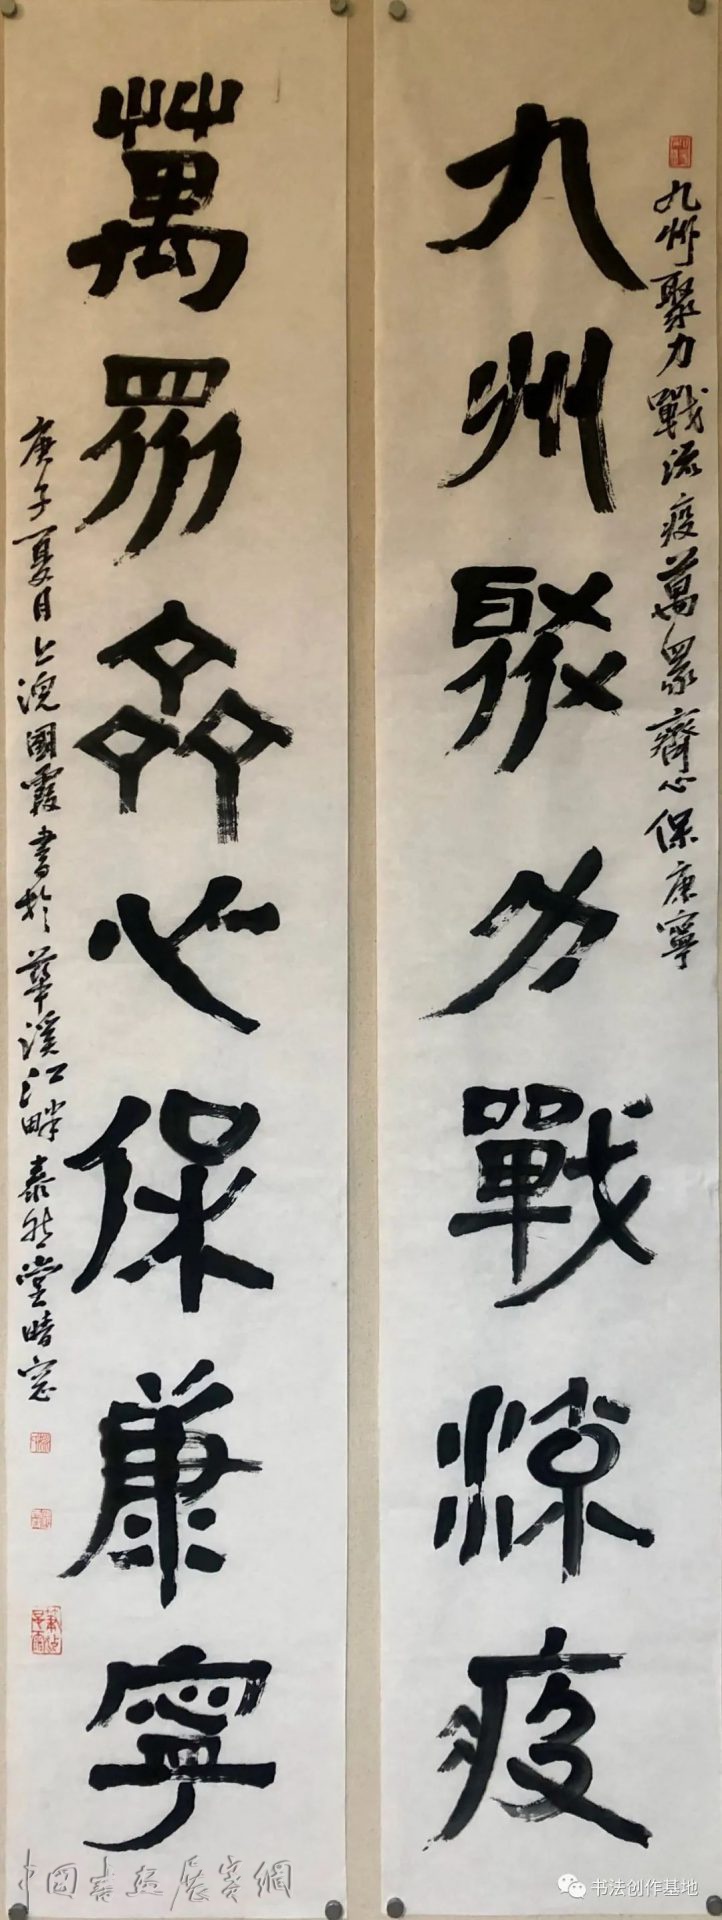 九州聚力戰流疫
九州聚力戰流疫萬眾齊心保康寧
萬眾齊心保康寧
庚子夏月上浣國霞書於華溪江畔泰然堂晴窓
中国書画展賽網
书法创作基地